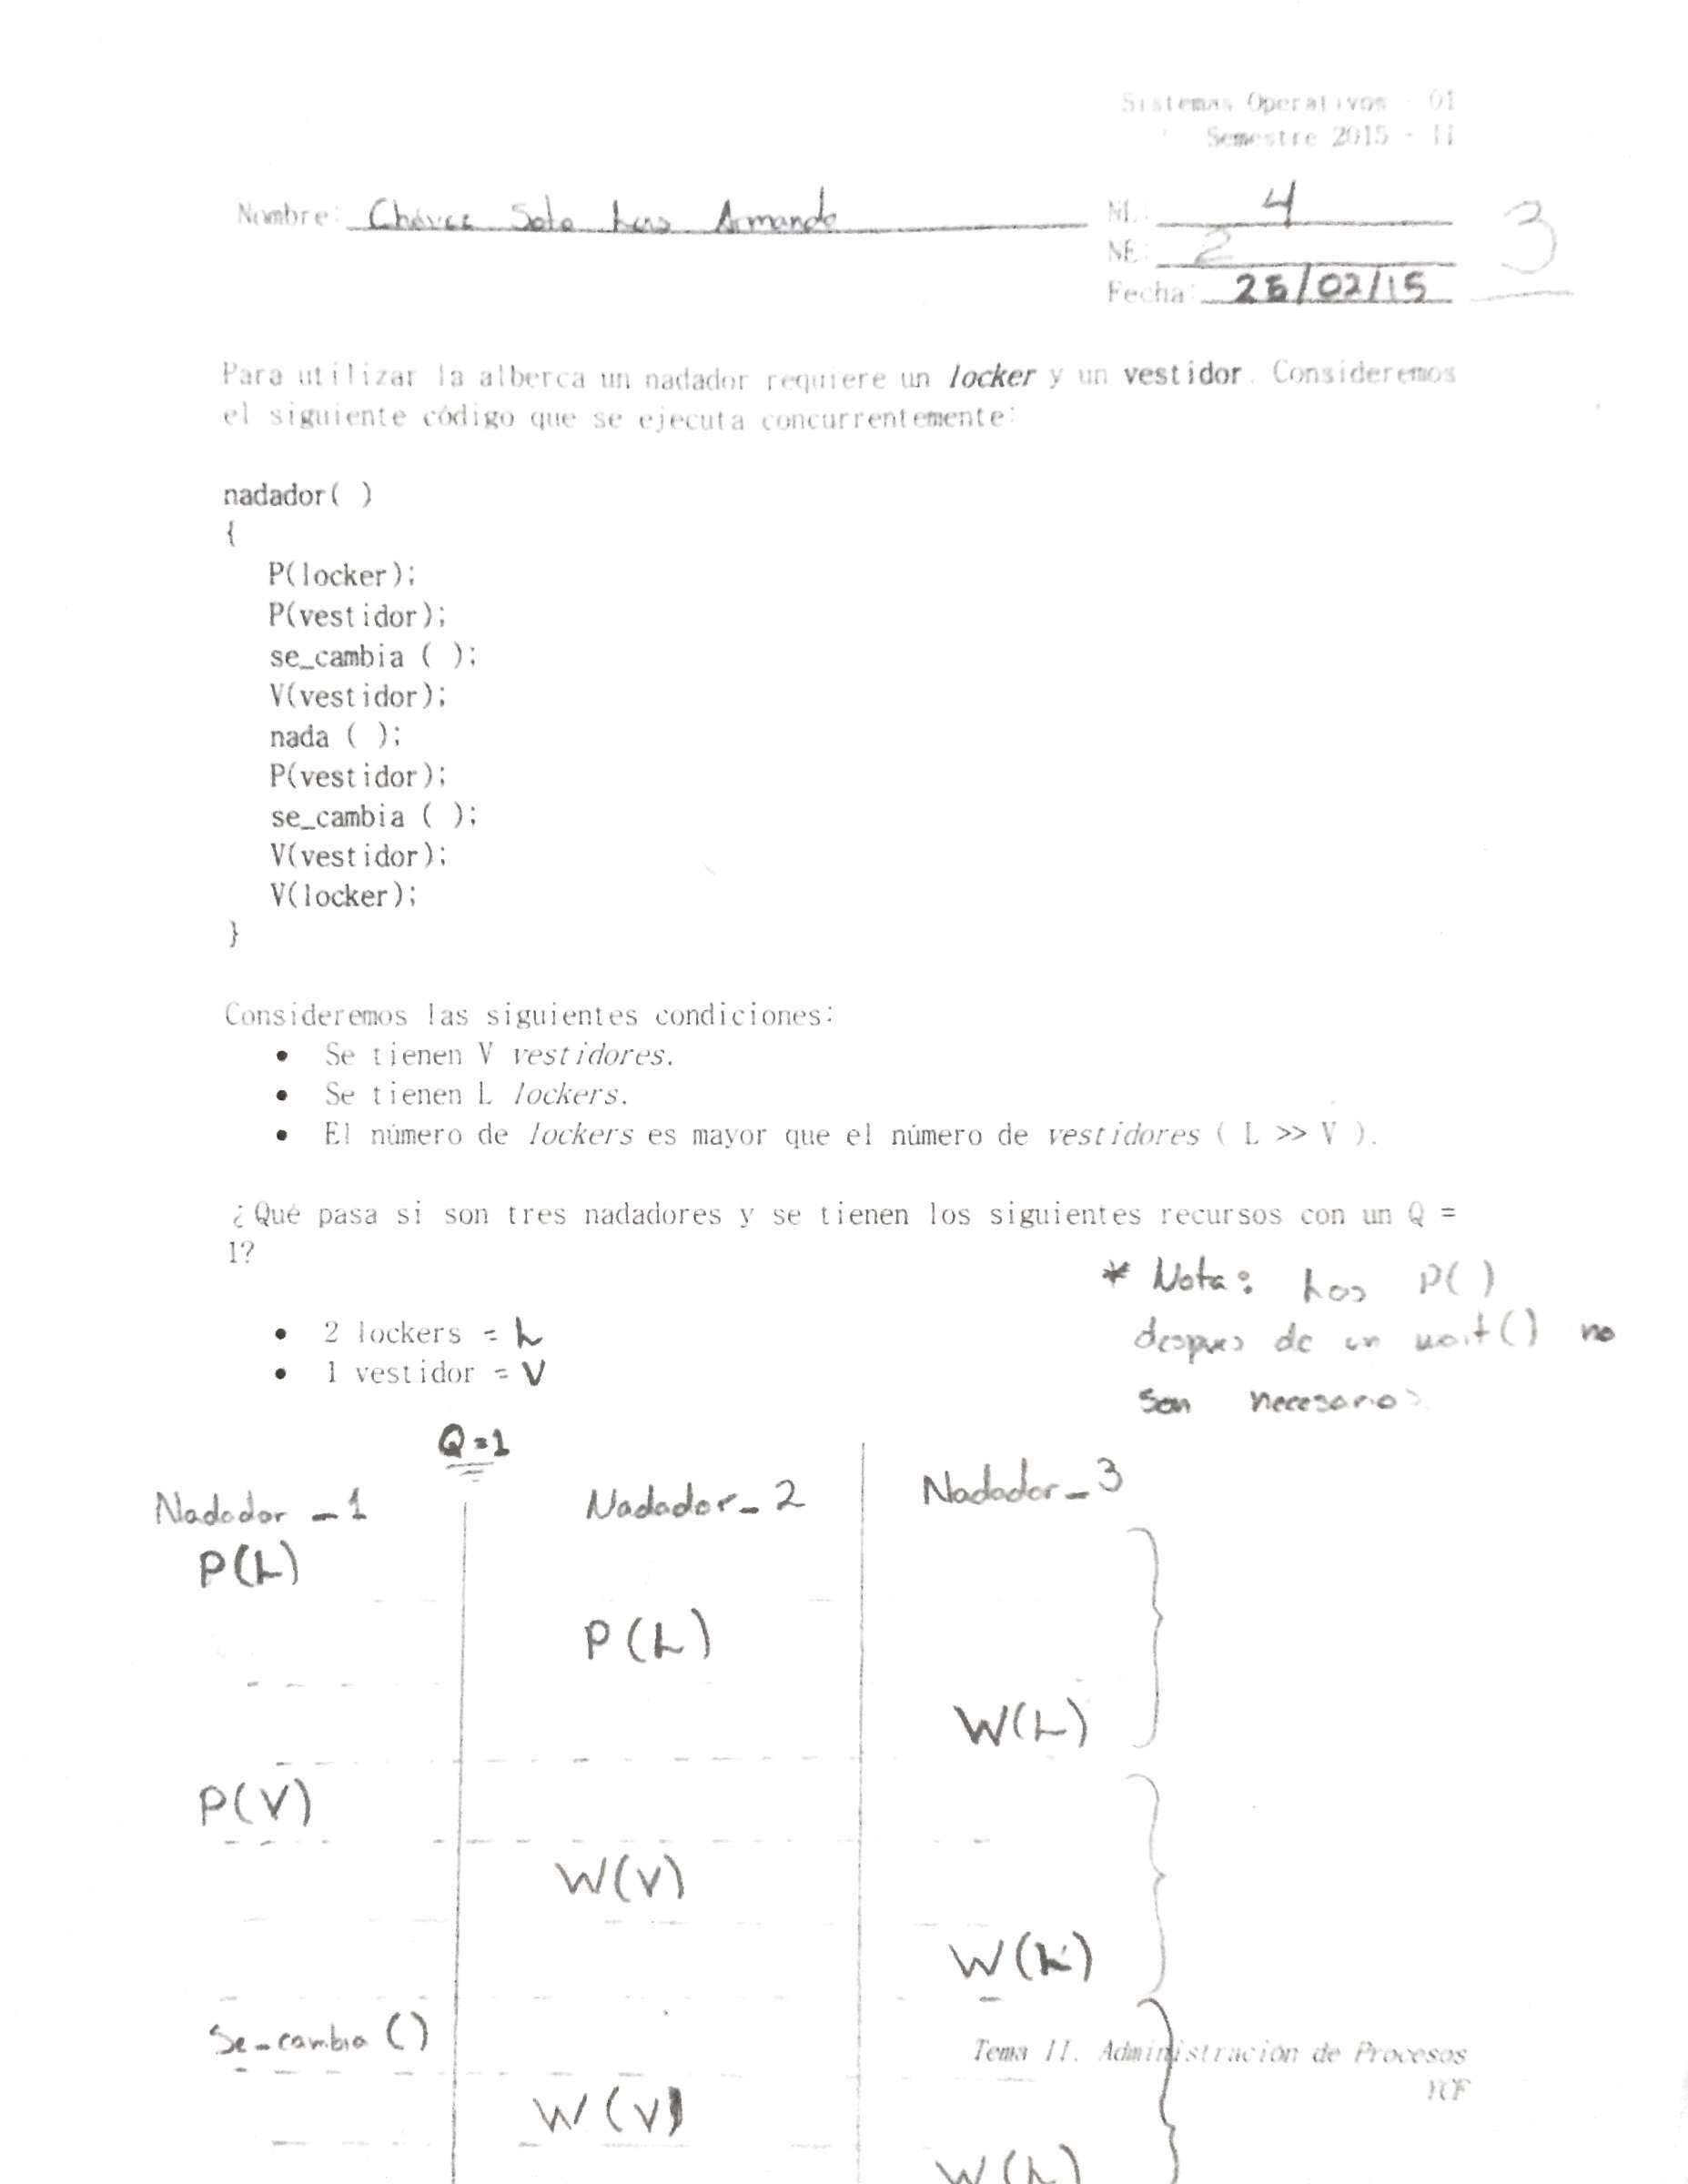 Sistemas Operativos - 01
Semestre 2015 - II
Nombre: Chávez Soto Luis Armando
NL: 4
3
NE: 2
Fecha: 25/02/15
Para utilizar la alberca un nadador requiere un locker y un vestidor. Consideremos
el siguiente código que se ejecuta concurrentemente:
nadador( )
{
P(locker);
P(vestidor);
se_cambia ( );
V(vestidor);
nada ( );
P(vestidor);
se_cambia ( );
V(vestidor);
V(locker);
}
Consideremos las siguientes condiciones:
• Se tienen V vestidores.
• Se tienen L lockers.
• El número de lockers es mayor que el número de vestidores ( L >> V ).
¿Qué pasa si son tres nadadores y se tienen los siguientes recursos con un Q =
1?
* Nota: Los P()
despues de un wait() no
son necesarios.
• 2 lockers = L
• 1 vestidor = V
Q=1
Nadador_1 Nadador_2 Nadador_3
P(L)
P(L)
W(L)
P(V)
W(V)
W(L)
Se_cambia ()
Tema II. Administración de Procesos
W(V)
W(L)